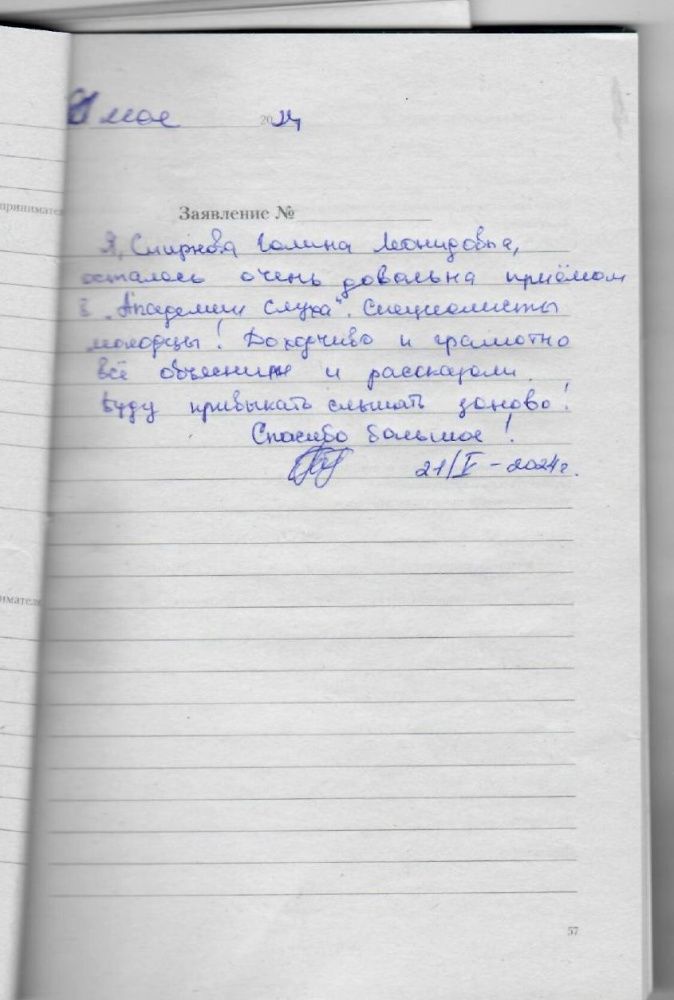 21 мая 2024
принимател
Заявление №
Я, Смирнова Галина Леонидовна,
осталась очень довольна приёмом
в „Академии слуха". Специалисты
молодцы! Доходчиво и грамотно
всё объяснили и рассказали.
Буду привыкать слышать заново!
Спасибо большое!
21/V-2024г.
имателя
57